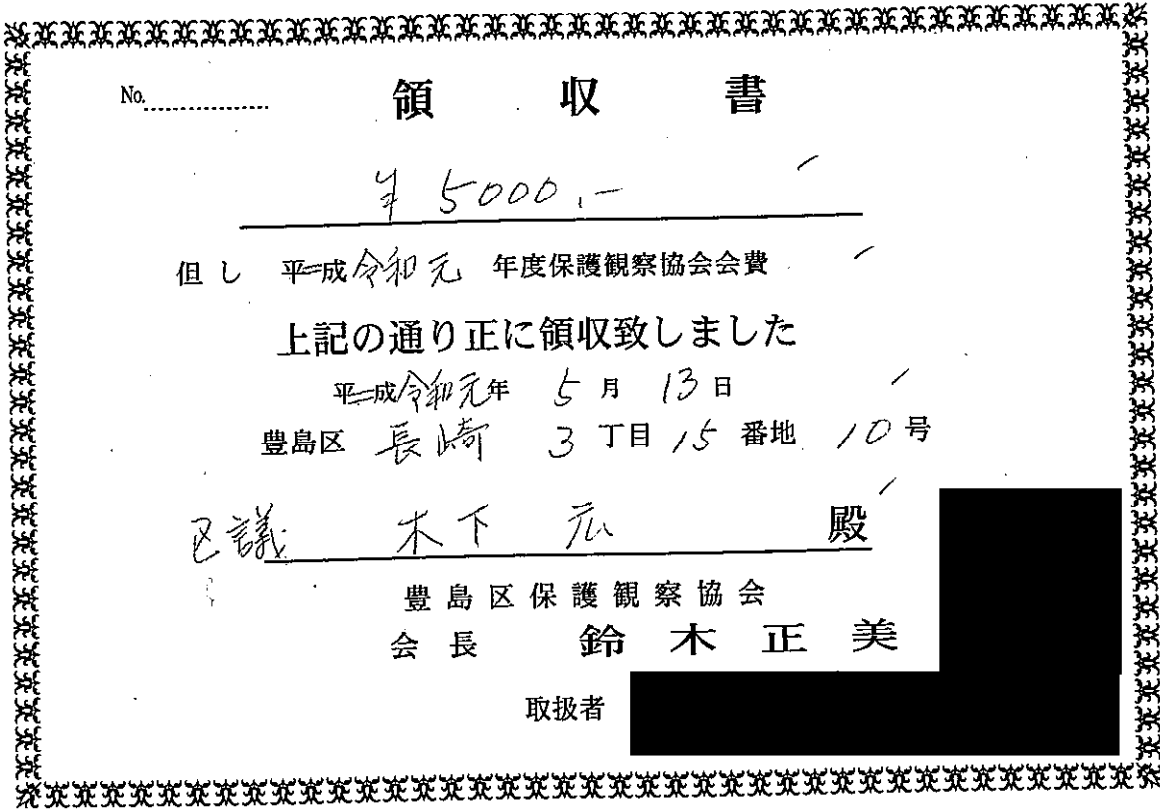 No.
領収書
¥5000.-
但し 平成令和元 年度保護観察協会会費
上記の通り正に領収致しました
平成令和元年 5月 13日
豊島区 長崎 3丁目 15番地 10号
区議 木下 広 殿
豊島区保護観察協会
会長 鈴木正美
取扱者